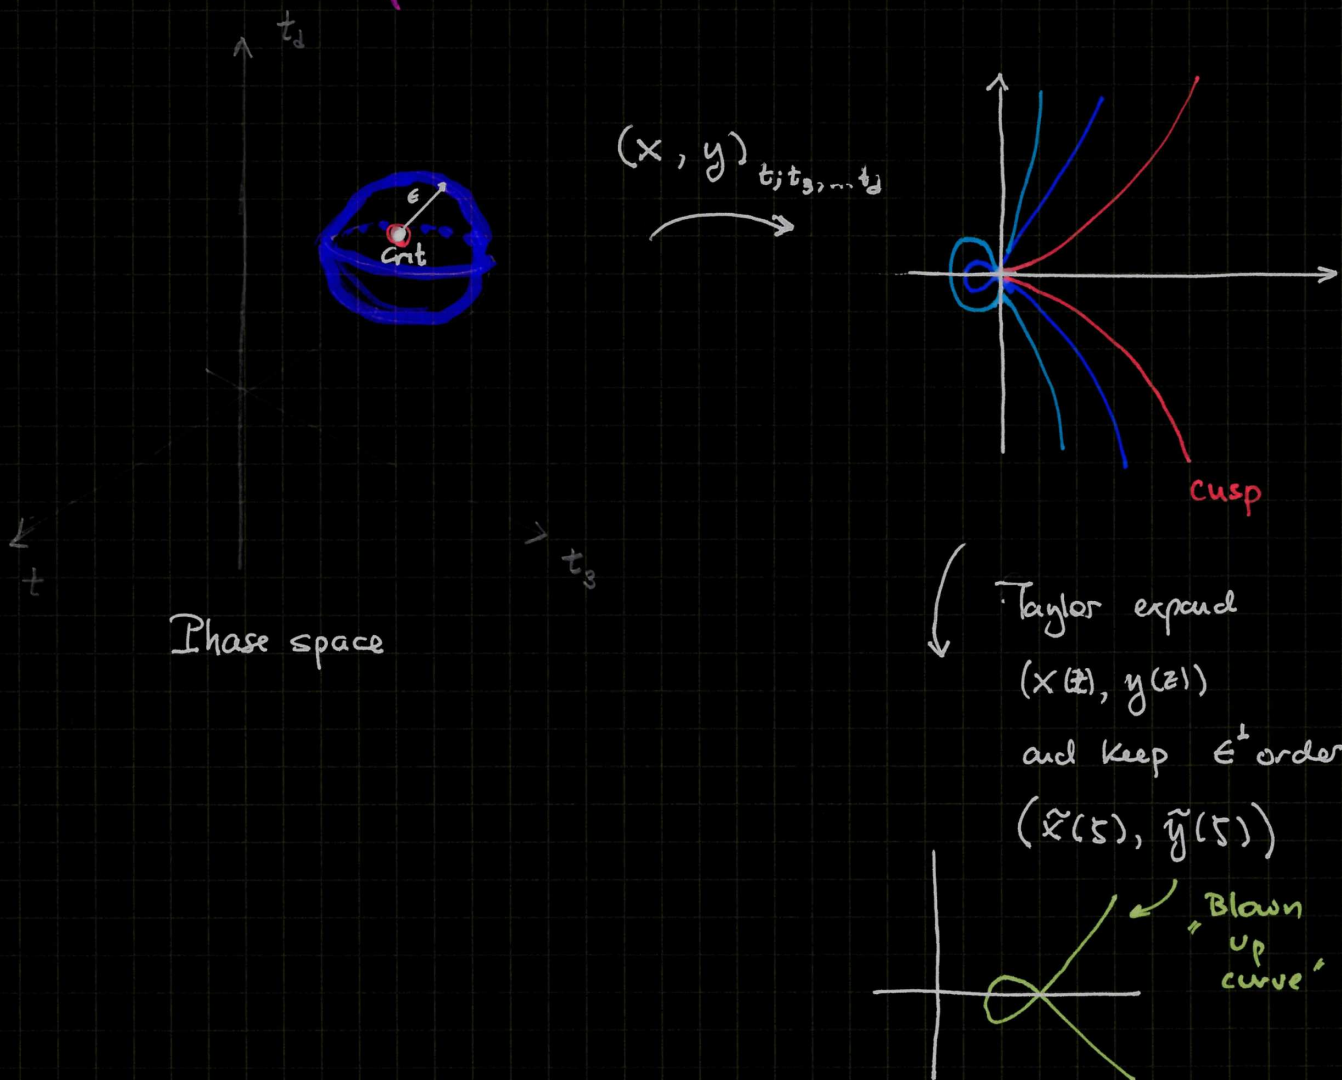 t_d
ϵ
Crit
t
t_3
Phase space
(x, y)_{t; t_3, ... t_d}
cusp
Taylor expand
(x(z), y(z))
and keep ϵ^1 order
(x̃(ζ), ỹ(ζ))
"Blown
up
curve"